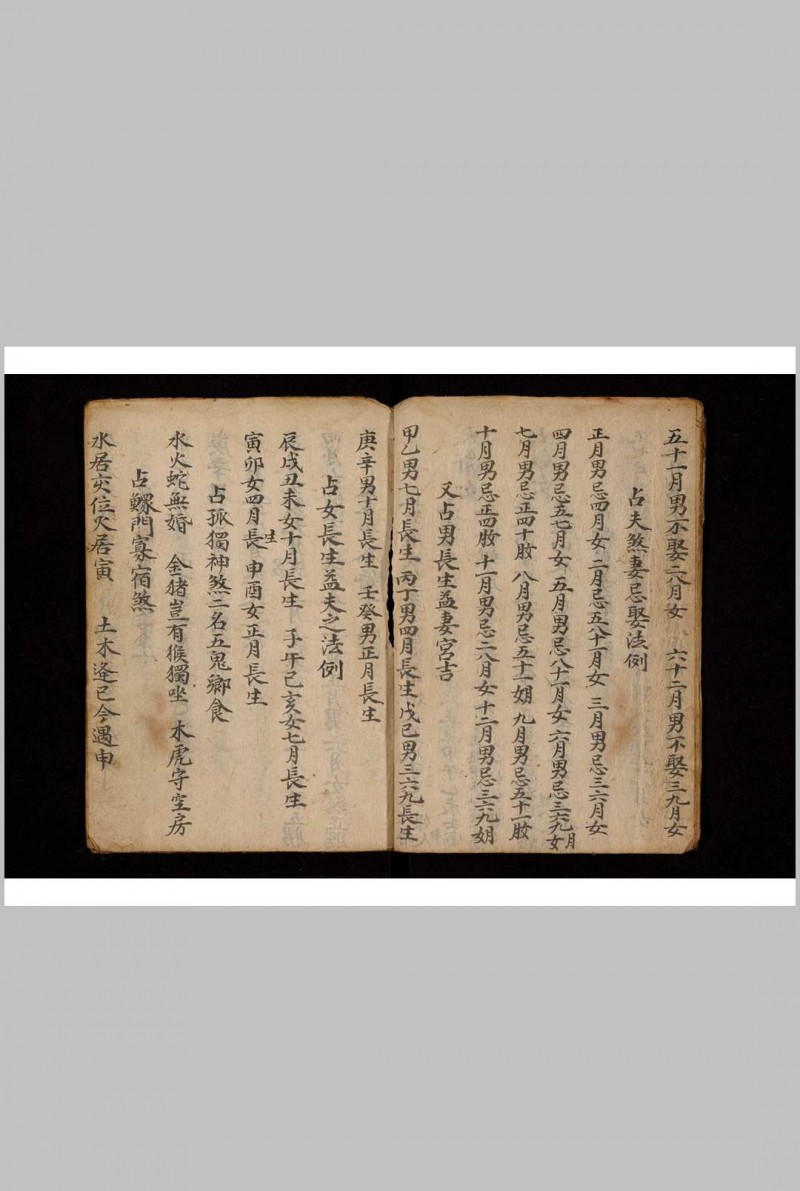 五十一月男不娶二八月女 六十二月男不娶三九月女
占夫煞妻忌娶法例
正月男忌四月女 二月忌五八十一月女 三月男忌三六月女
四月男忌五七月女 五月男忌八十一月女 六月男忌三六九月女
七月男忌正四十肢 八月男忌五十一姐 九月男忌五十一肢
十月男忌正四肢 十一月男忌二八月女 十二月男忌三六九姐
又占男長生益妻宮吉
甲乙男七月長生 丙丁男四月長生 戊己男三六九長生
庚辛男十月長生 壬癸男正月長生
占女長生益夫之法例
辰戌丑未女十月長生 子午己亥女七月長生
寅卯女四月長生 申酉女正月長生
占孤獨神煞二名五鬼鄉食
水火蛇無婚 金猪豈有猴獨坐 木虎守空房
占鰥門寡宿煞
水居亥位火居寅 土木逢已今遇申